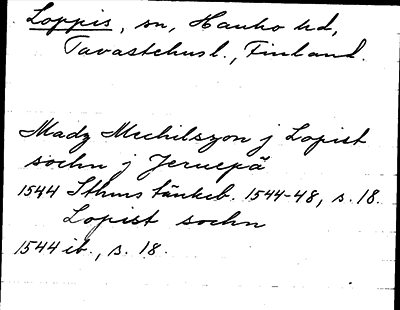 Loppis, sn, Hauho hd,
Tavastehusl., Finland.
Madz Mechilszon j Lopist
sochn j Jeruepä
1544 Sthms tänkeb. 1544-48, s. 18.
Lopist sochn
1544 ib., s. 18.